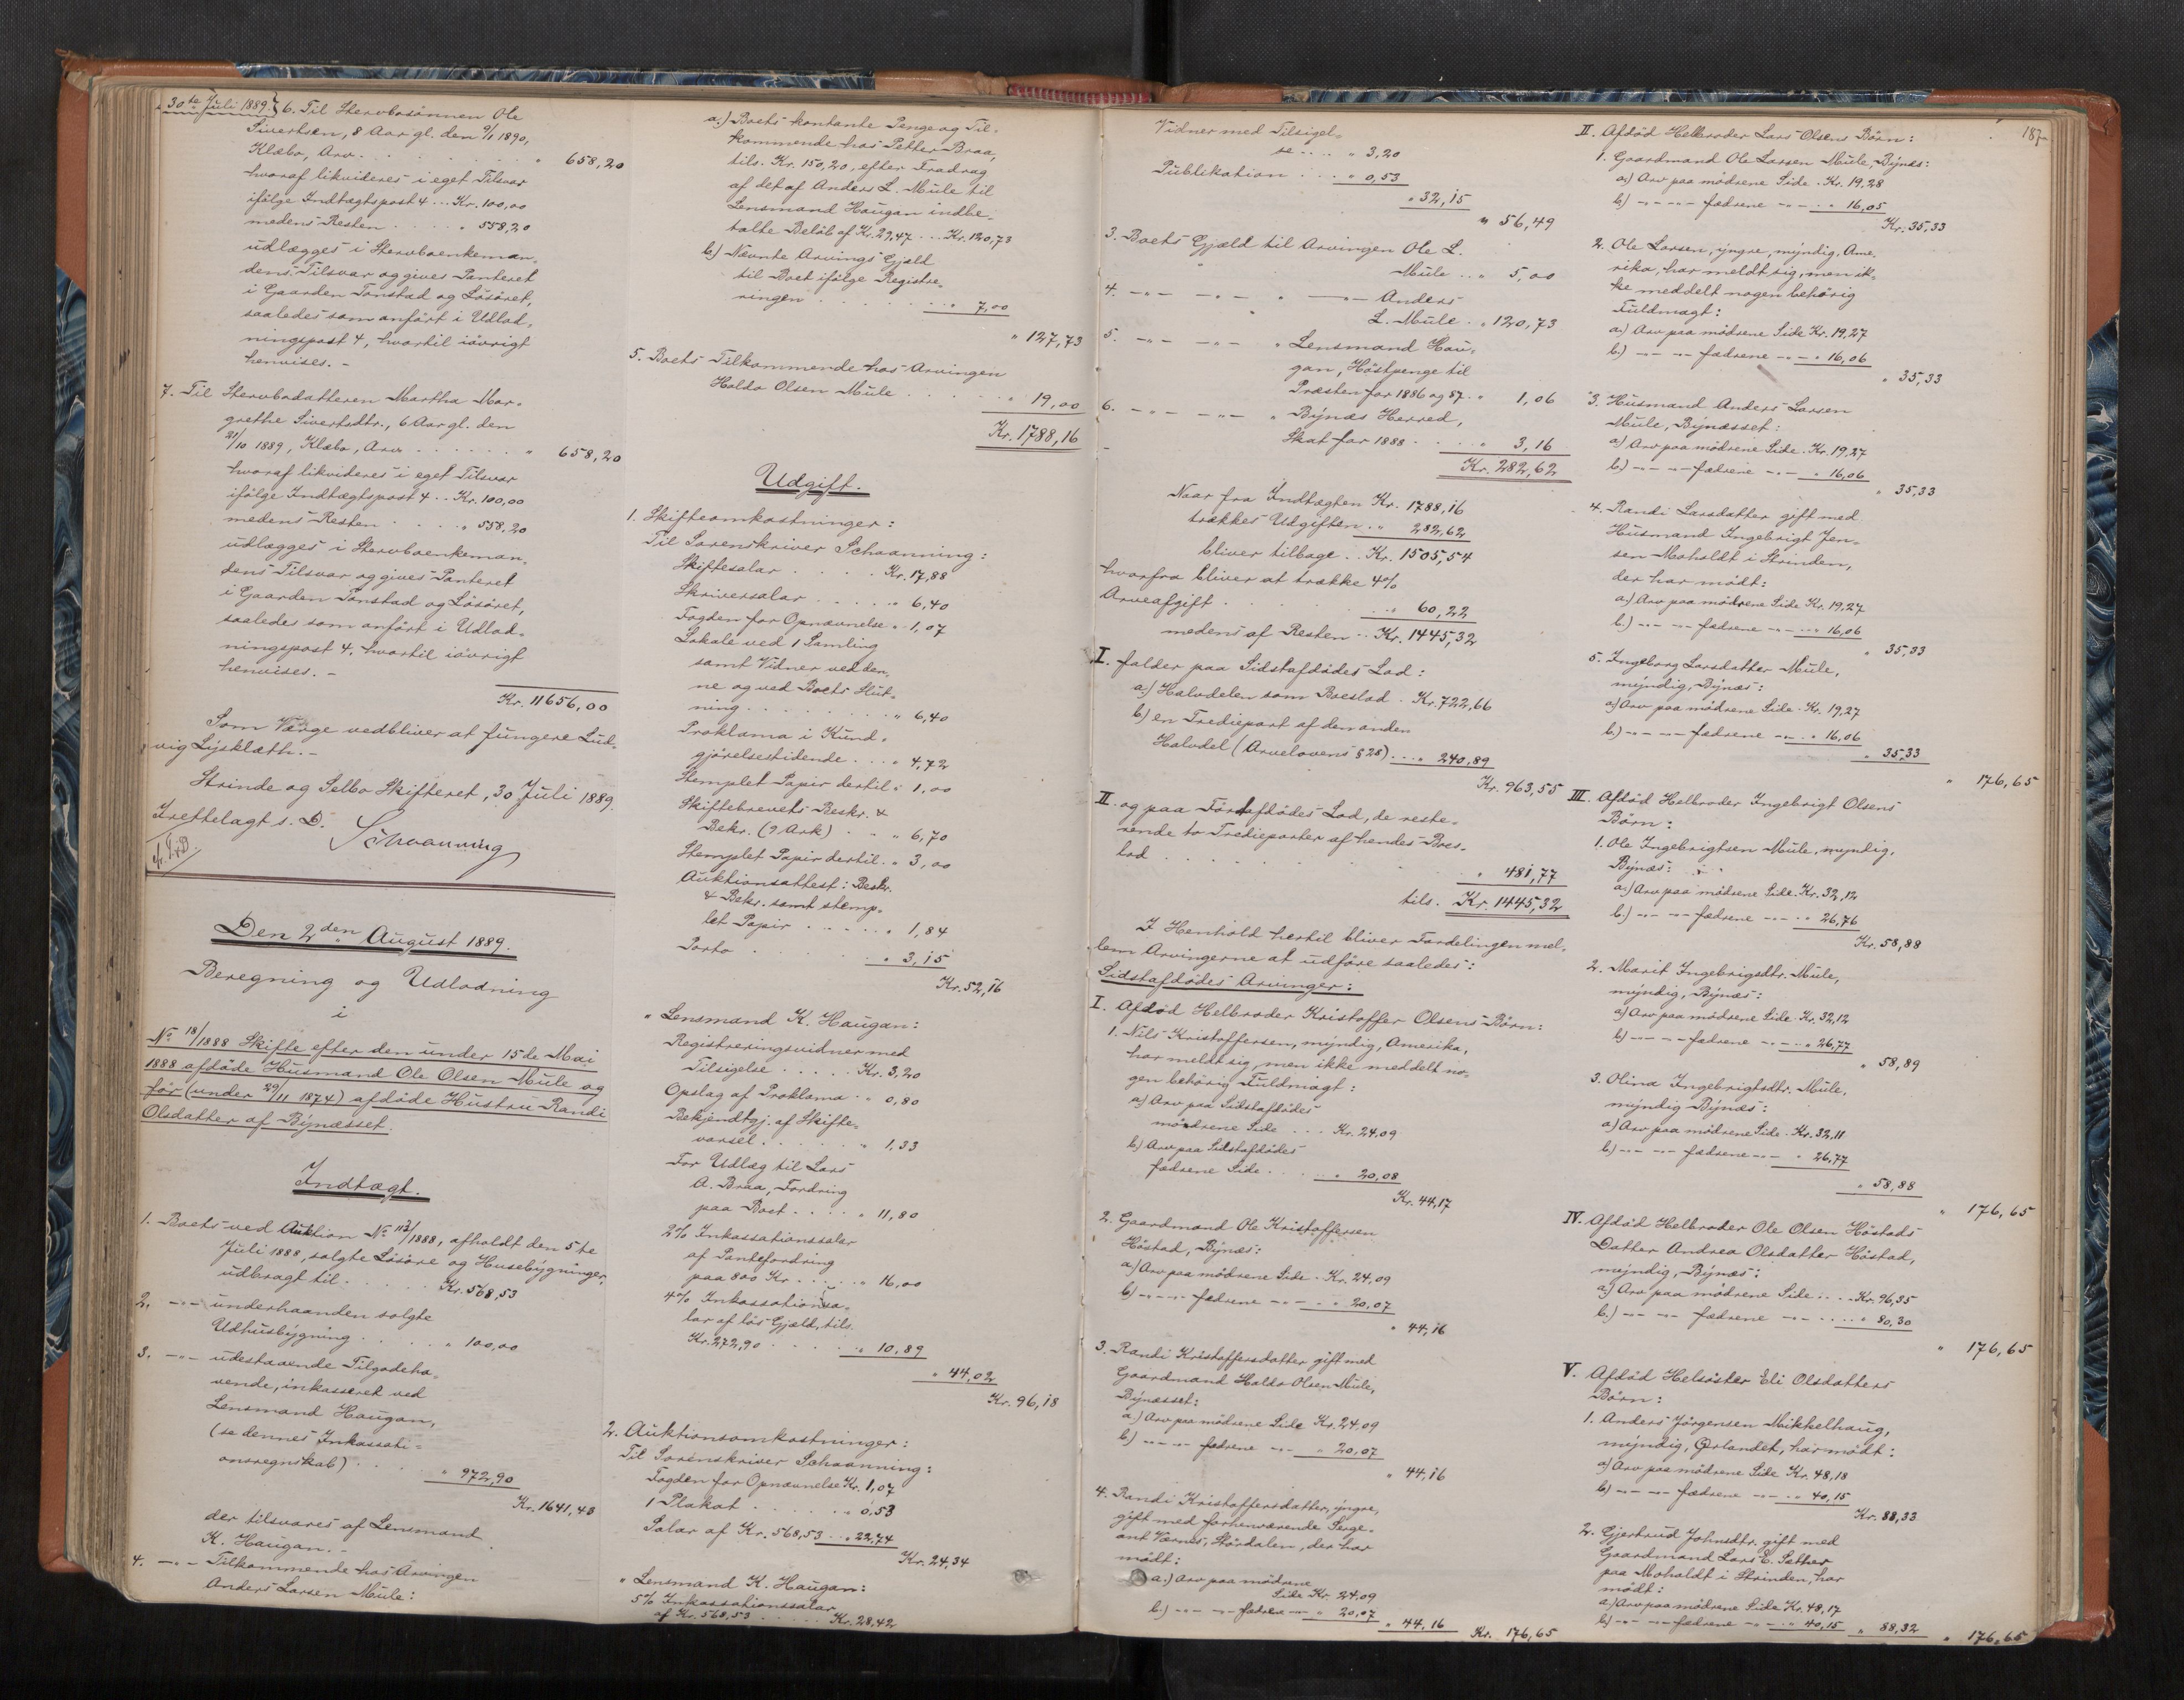 30te Juli 1889. 6. Til Stervbosönnen Ole
Sivertsen, 8 Aar gl. den 9/1 1890,
Klæbo, Arv . . . . . . . " 658,20
hvoraf likvideres i eget Tilsvar
ifölge Indtægtspost 4 . . . Kr. 100,00
medens Resten . . . . . " 558,20
udlægges i Stervboenkeman-
dens Tilsvar og gives Panteret
i Gaarden Tonstad og Lösöret,
saaledes som anfört i Udlod-
ningspost 4, hvortil iövrigt
henvises. -
7. Til Stervbodatteren Martha Mar-
grethe Sivertsdtr., 6 Aar gl. den
21/10 1889, Klæbo, Arv . . . . . . " 658,20
hvoraf likvideres i eget Tilsvar
ifölge Indtægtspost 4 . . Kr. 100,00
medens Resten . . . . " 558,20
udlægges i Stervboenkeman-
dens Tilsvar og gives Panteret
i Gaarden Tonstad og Lösöret,
saaledes som anfört i Udlod-
ningspost 4, hvortil iövrigt
henvises. -
Kr. 11656,00
Som Værge vedbliver at fungere Lud-
vig Lysklæth. -
Strinde og Selbo Skifteret, 30 Juli 1889.
Irettelagt s. D.
Schaanning
Den 2den August 1889.
Beregning og Udlodning
i
No 18/1888 Skifte efter den under 15de Mai
1888 afdöde Husmand Ole Olsen Mule og
för (under 29/11 1874) afdöde Hustru Randi
Olsdatter af Bynæsset.
Indtægt.
1. Boets ved Auktion No 113/1888, afholdt den 5te
Juli 1888, solgte Lösöre og Husebygninger,
udbragt til . . . . . Kr. 568,53
2. -"- underhaanden solgte
Udhusbygning . . . . " 100,00
3. -"- udestaaende Tilgodeha-
vende, inkasseret ved
Lensmand Haugan,
(se dennes Inkassati-
onsregnskab) . . . . " 972,90
Kr. 1641,43
der tilsvares af Lensmand
K. Haugan. -
4. -"- Tilkommende hos Arvingen
Anders Larsen Mule:
a.) Boets kontante Penge og Til-
kommende hos Petter Braa,
tils. Kr. 150,20, efter Fradrag
af det af Anders L. Mule til
Lensmand Haugan indbe-
talte Belöb af Kr. 29,47 . . . Kr. 120,73
b.) Nævnte Arvings Gjæld
til Boet ifölge Registre-
ringen . . . . . . . . " 7,00
" 127,73
5. Boets Tilkommende hos Arvingen
Haldo Olsen Mule . . . . . . " 19,00
Kr. 1788,16
Udgift.
1. Skifteomkostninger:
Til Sorenskriver Schaanning:
Skiftesalar . . . . . Kr. 17,88
Skriversalar . . . . . " 6,40
Fogden for Opnævnelse " 1,07
Lokale ved 1 Samling
samt Vidner ved den-
ne og ved Boets Slut-
ning . . . . . . . . " 6,40
Proklama i Kund-
gjörelsestidende . . . " 4,72
Stemplet Papir dertil " 1,00
Skiftebrevets Beskr. &
Bekr. (9 Ark) . . . " 6,70
Stemplet Papir dertil . " 3,00
Auktionsattest: Beskr.
& Bekr. samt stemp-
let Papir . . . . . . " 1,84
Porto . . . . . . . . " 3,15
Kr. 52,16
" Lensmand K. Haugan:
Registreringsvidner med
Tilsigelse . . . . . Kr. 3,20
Opslag af Proklama . " 0,80
Bekjendtgj. af Skifte-
varsel . . . . . . . " 1,33
For Udlæg til Lars
A. Braa, Fordring
paa Boet . . . . " 11,80
2% Inkassationssalar
af Pantefordring
paa 800 Kr . . . . . " 16,00
4% Inkassationssa-
lar af lös Gjæld, tils.
Kr. 272,90 . . . . . " 10,89
" 44,02
Kr. 96,18
2. Auktionsomkostninger:
Til Sorenskriver Schaanning:
Fogden for Opnævnelse Kr. 1,07
1 Plakat . . . . . . " 0,53
Salar af Kr. 568,53 . . " 22,74
Kr. 24,34
" Lensmand K. Haugan:
5% Inkassationssalar
af Kr. 568,53 . . . . . Kr. 28,42
Vidner med Tilsigel-
se . . . . " 3,20
Publikation . . . . " 0,53
" 32,15
" 56,49
3. Boets Gjæld til Arvingen Ole L.
Mule . . " 5,00
4. -"- -"- " -"- Anders
L. Mule . " 120,73
5. -"- -"- " Lensmand Hau-
gan, Höstpenge til
Præsten for 1886 og 87 . " 1,06
6. -"- -"- " Bynæs Herred,
Skat for 1888 . . . . " 3,16
Kr. 282,62
Naar fra Indtægten Kr. 1788,16
trækkes Udgiften . . " 282,62
bliver tilbage . . Kr. 1505,54
hvorfra bliver at trække 4%
Arveafgift . . . . . . . . " 60,22
medens af Resten . . Kr. 1445,32
I. falder paa Sidstafdödes Lod:
a.) Halvdelen som Boeslod . Kr. 722,66
b.) en Trediepart af den anden
Halvdel (Arvelovens § 28) . . . " 240,89
Kr. 963,55
II. og paa Förstafdödes Lod, de reste-
rende to Tredieparter af hendes Boes-
lod . . . . . . . . . . " 481,77
tils. Kr. 1445,32
I Henhold hertil bliver Fordelingen mel-
lem Arvingerne at udföre saaledes:
Sidstafdödes Arvinger:
I. Afdöd Helbroder Kristoffer Olsens Börn:
1. Nils Kristoffersen, myndig, Amerika,
har meldt sig, men ikke meddelt no-
gen behörig Fuldmagt:
a) Arv paa Sidstafdödes
mödrene Side . . . Kr. 24,09
b) Arv paa Sidstafdödes
fædrene Side . . . . . " 20,08
Kr. 44,17
2. Gaardmand Ole Kristoffersen
Höstad, Bynæs:
a.) Arv paa mödrene Side . Kr. 24,09
b) -"- -"- fædrene -"- . . " 20,07
" 44,16
3. Randi Kristoffersdatter gift med
Gaardmand Haldo Olsen Mule,
Bynæsset:
a.) Arv paa mödrene Side Kr. 24,09
b.) -"- -"- fædrene -"- " 20,07
" 44,16
4. Randi Kristoffersdatter, yngre,
gift med forhenværende Serge-
ant Værnes, Stördalen, der har
mödt:
a.) Arv paa mödrene
Side Kr. 24,09
b.) -"- -"- fædrene -"- " 20,07
" 44,16 Kr. 176,65
187
II. Afdöd Helbroder Lars Olsens Börn:
1. Gaardmand Ole Larsen Mule, Bynæs:
a.) Arv paa mödrene Side . Kr. 19,28
b.) -"- -"- fædrene -"- . . " 16,05
Kr. 35,33
2. Ole Larsen, yngre, myndig, Ame-
rika, har meldt sig, men ik-
ke meddelt nogen behörig
Fuldmagt:
a.) Arv paa mödrene Side Kr. 19,27
b.) -"- -"- fædrene -"- " 16,06
" 35,33
3. Husmand Anders Larsen
Mule, Bynæsset:
a.) Arv paa mödrene Side . Kr. 19,27
b.) -"- -"- fædrene -"- " 16,06
" 35,33
4. Randi Larsdatter gift med
Husmand Ingebrigt Jen-
sen Moholdt i Strinden,
der har mödt:
a.) Arv paa mödrene Side Kr. 19,27
b.) -"- -"- fædrene -"- . . " 16,06
" 35,33
5. Ingeborg Larsdatter Mule,
myndig, Bynæs:
a) Arv paa mödrene Side . Kr. 19,27
b.) -"- -"- fædrene -"- . " 16,06
" 35,33
" 176,65
III. Afdöd Helbroder Ingebrigt Olsens
Börn:
1. Ole Ingebrigtsen Mule, myndig,
Bynæs:
a.) Arv paa mödrene Side . Kr. 32,12
b.) -"- -"- fædrene -"- . " 26,76
Kr. 58,88
2. Marit Ingebrigsdtr. Mule,
myndig, Bynæs:
a) Arv paa mödrene Side . Kr. 32,12
b) -"- -"- fædrene -"- . " 26,77
" 58,89
3. Olina Ingebrigtsdtr. Mule,
myndig Bynæs:
a) Arv paa mödrene Side . Kr. 32,11
b.) -"- -"- fædrene -"- " 26,77
" 58,88
" 176,65
IV. Afdöd Helbroder Ole Olsen Höstads
Datter Andrea Olsdatter Höstad,
myndig, Bynæs:
a.) Arv paa mödrene Side . . . Kr. 96,35
b.) -"- -"- fædrene -"- . . . . " 80,30
" 176,65
V. Afdöd Helsöster Eli Olsdatters
Börn:
1. Anders Jörgensen Mikkelhaug,
myndig, Ørlandet, har mödt:
a) Arv paa mödrene Side Kr. 48,18
b) -"- -"- fædrene -"- . . " 40,15
Kr. 88,33
2. Gjertrud Johnsdtr. gift med
Gaardmand Lars E. Sæther
paa Moholdt i Strinden, har
mödt:
a) Arv paa mödrene Side Kr. 48,17
b) -"- -"- fædrene -"- . . " 40,15 " 88,32 " 176,65